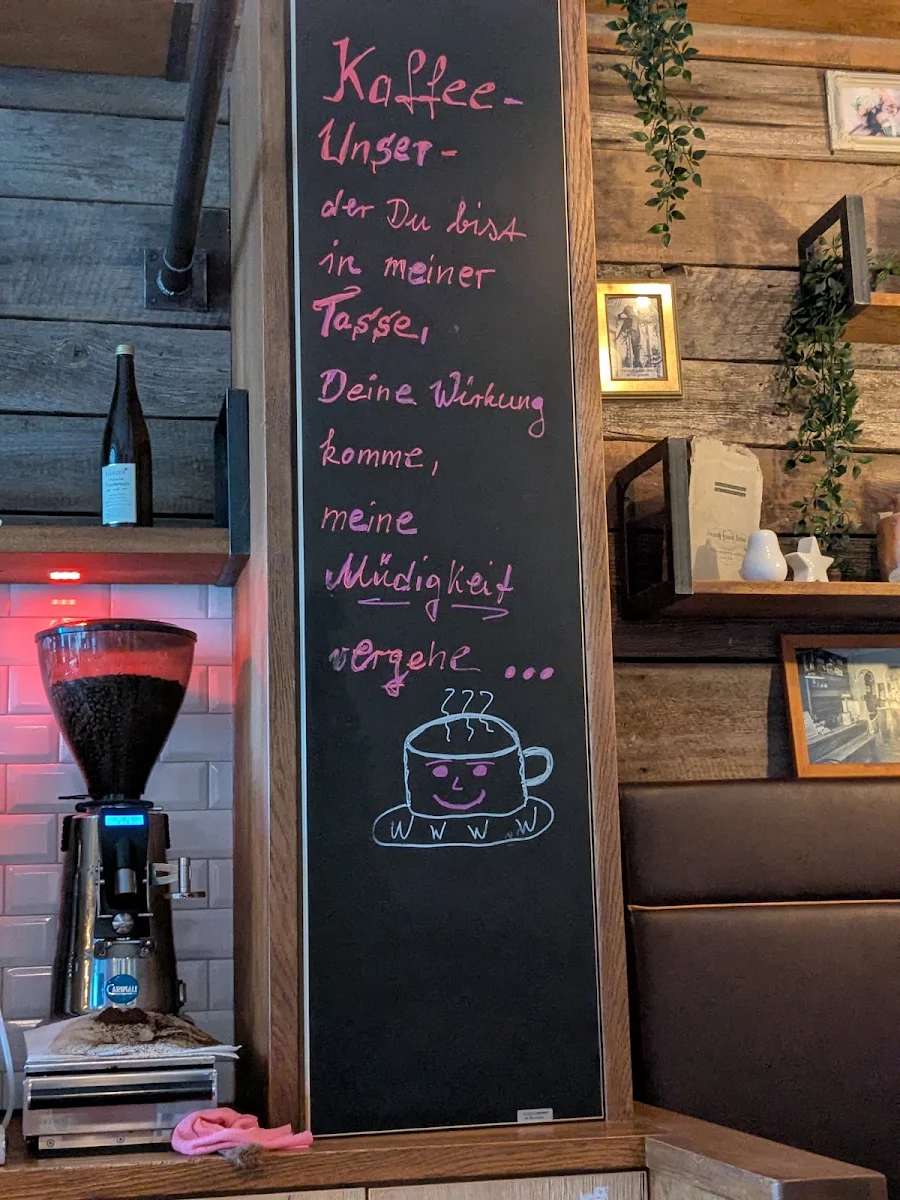 Kaffee-
Unser-
der Du bist
in meiner
Tasse,
Deine Wirkung
komme,
meine
Müdigkeit
vergehe ...
W W W W